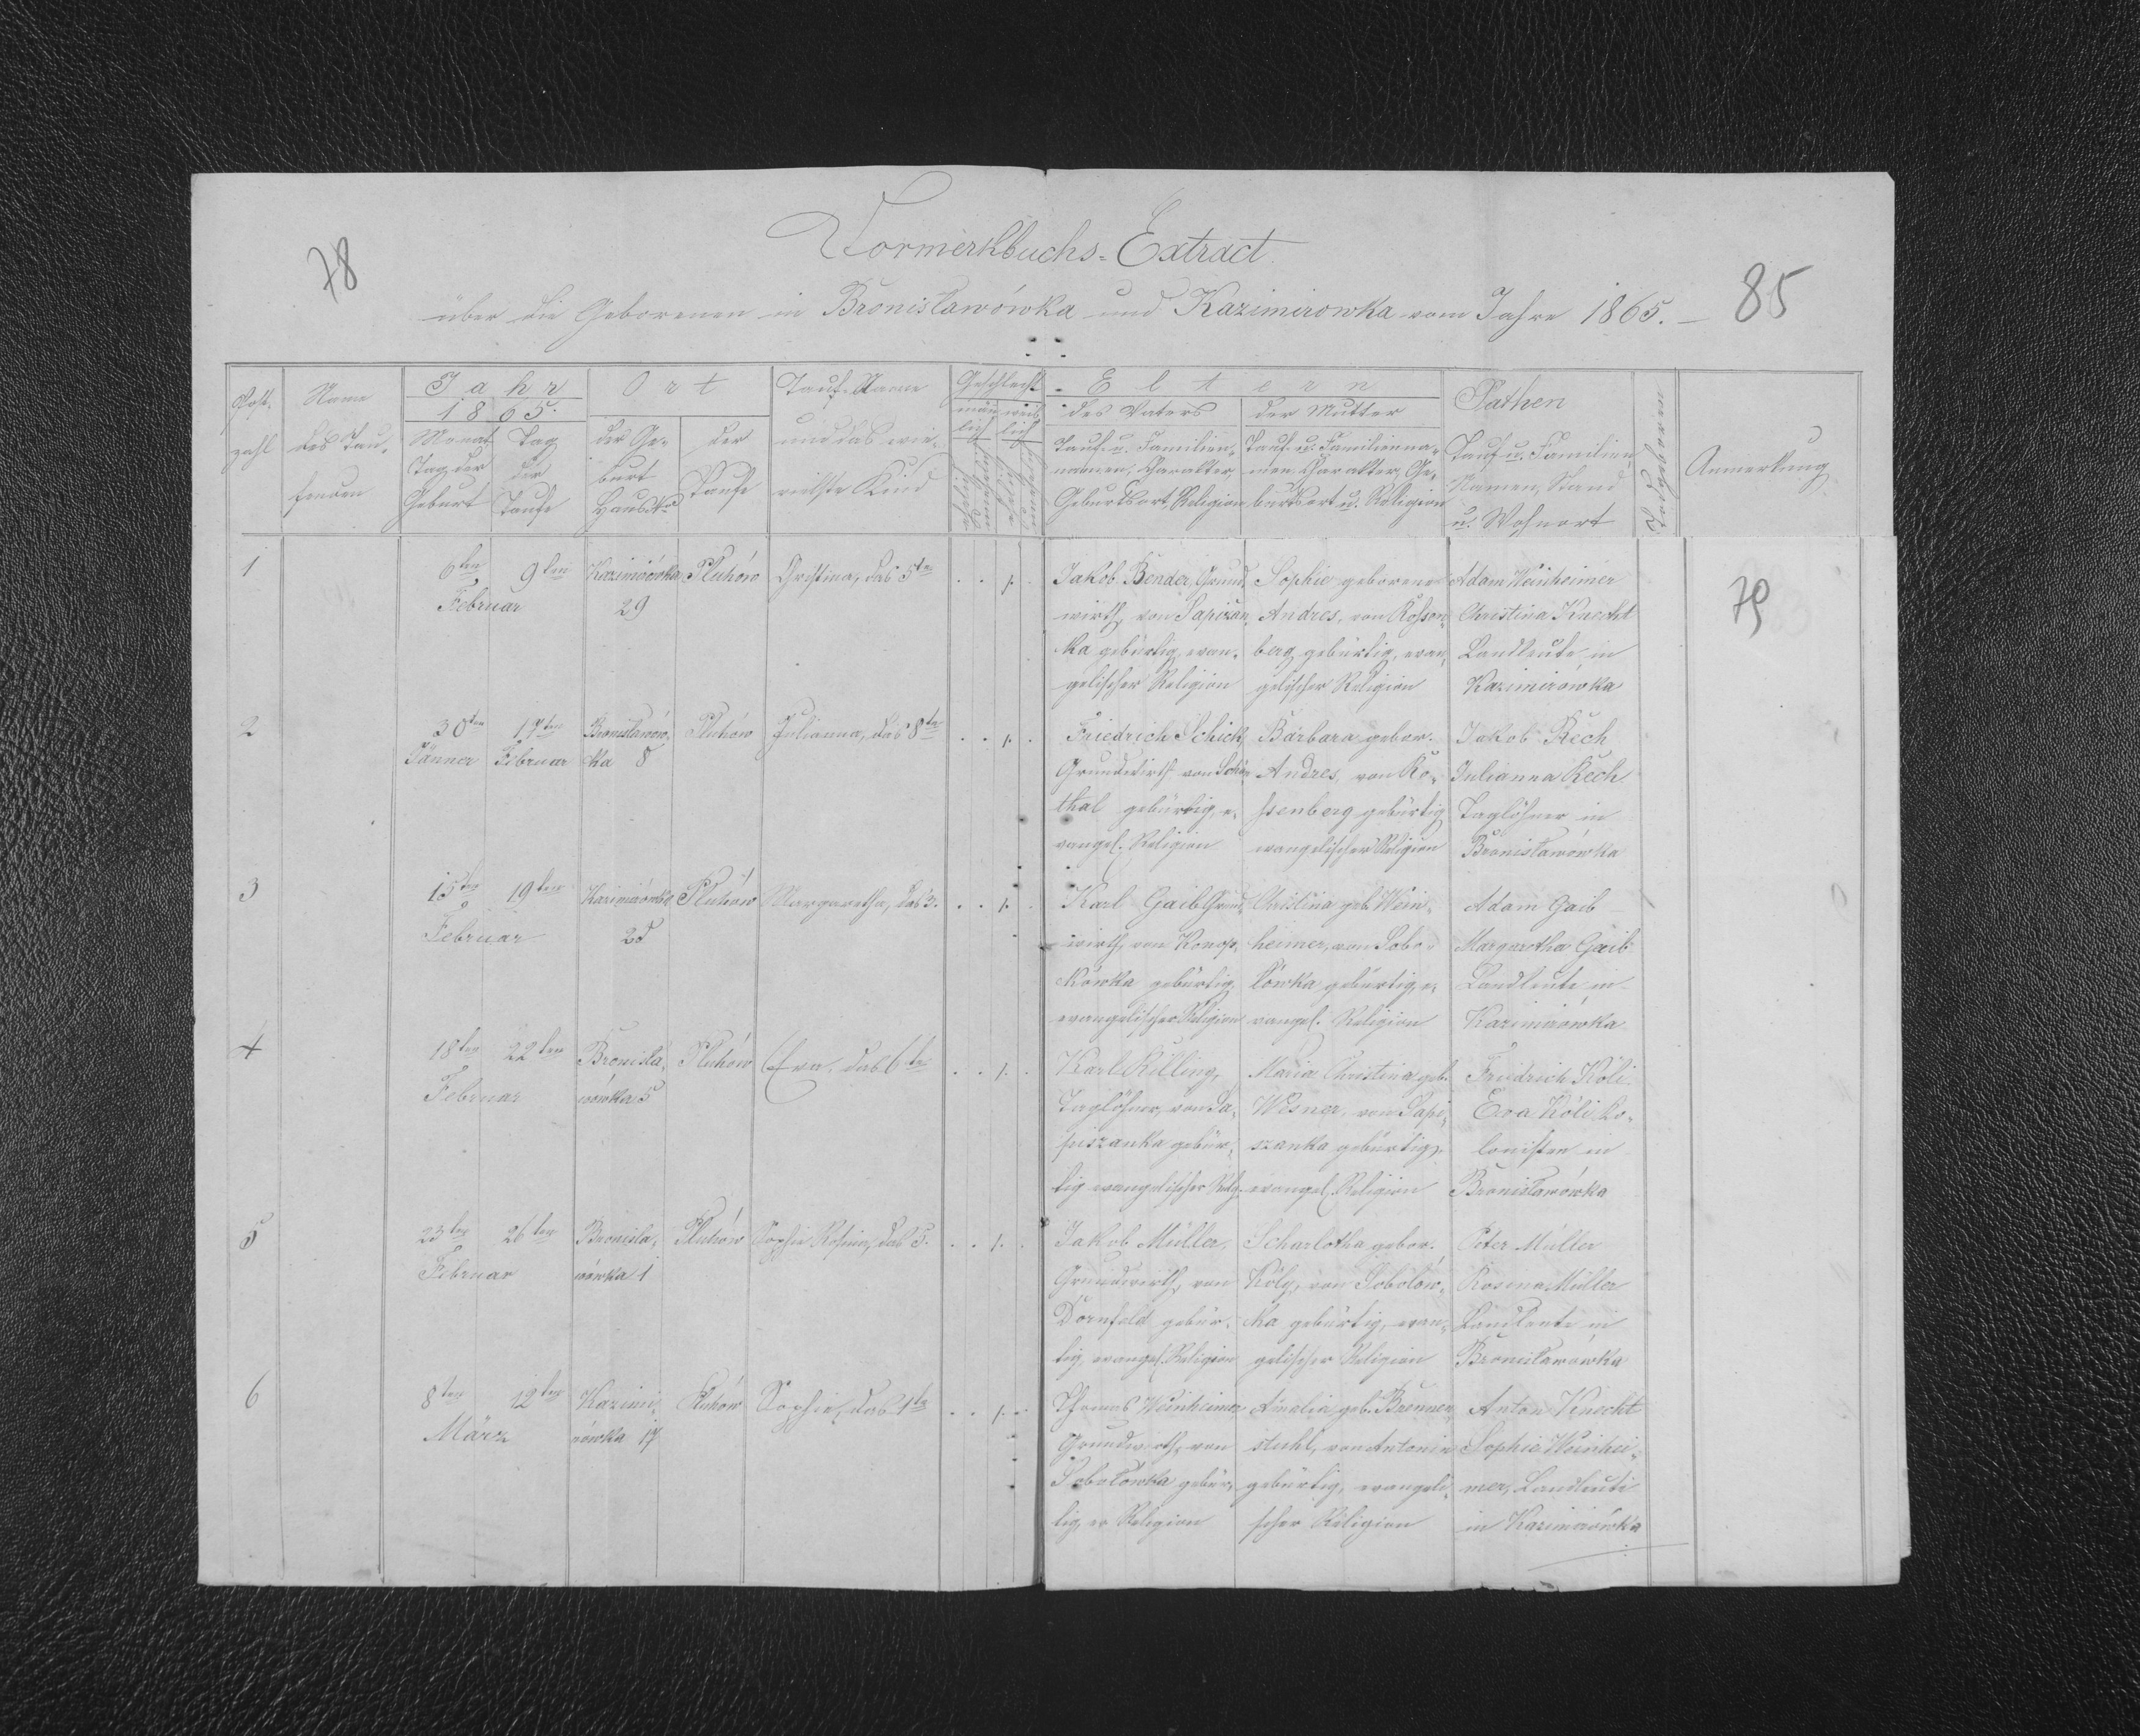 Vormerkbuchs-Extract
78
85
über die Geborenen in Bronisławówka und Kazimirowka vom Jahre 1865.
Post-
zahl
Name
des Tau-
fenden
Jahr
1865.
Monat
Tag der
Geburt
Tag
der
Taufe
Ort
der Ge-
burt
Haus No
der
Taufe
Tauf-Name
und das wie-
vielste Kind
Geschlecht
män-
lich
weib-
lich
ehelich
unehelich
ehelich
unehelich
Eltern
des Vaters
Tauf- u. Familien-
namen, Charakter,
Geburtsort, Religion
der Mutter
Tauf- u. Familienna-
men Charakter, Ge-
burtsort u. Religion
Pathen
Tauf u. Familien
Namen, Stand
u. Wohnort
Todtgeboren
Anmerkung
1
6ten
9ten
Februar
Kazimirówka
29
Pluhów
Christina, das 5te
1.
Jakob Bender, Grund-
wirth, von Sapizan-
ka gebürtig, evan-
gelischer Religion
Sophie geborene
Andres, von Rossen-
berg gebürtig, evan-
gelischer Religion
Adam Weinheimer
Christina Knecht
Landleute in
Kazimirówka
79
2
30ten
Jänner
17ten
Februar
Bronisławów-
ka 8
Pluhów
Julianna, das 8te
1.
Friedrich Schick,
Grundwirth von Schön-
thal gebürtig, e-
vangel. Religion
Barbara gebor.
Andres, von Ro-
ssenberg gebürtig
evangelischer Religion
Jakob Rech
Julianna Rech
Taglöhner in
Bronisławówka
3
15ten
19ten
Februar
Kazimirówka
25
Pluhów
Margaretha, das 3.
1.
Karl Gaib Grund-
wirth, von Konop-
kówka gebürtig,
evangelischer Religion
Christina geb. Wein-
heimer, von Sobo-
lówka gebürtig, e-
vangel. Religion
Adam Gaib
Margaretha Gaib
Landleute in
Kazimirówka
4
18ten
22ten
Februar
Bronisła-
wówka 5
Pluhów
Eva, das 6te
1.
Karl Killing,
Taglöhner, von Sa-
piszanka gebür-
tig evangelischer Relg.
Maria Christina geb.
Wesner, von Sapi-
szanka gebürtig,
evangel. Religion
Friedrich Köli
Eva Köli Ko-
lonisten in
Bronisławówka
5
23ten
26ten
Februar
Bronisła-
wówka 1
Pluhów
Sophie Rosina, das 5.
1.
Jakob Müller,
Grundwirth, von
Dornfeld gebür-
tig, evangel. Religion
Scharlotha gebor.
Köly, von Sobolów-
ka gebürtig, evan-
gelischer Religion
Peter Müller
Rosina Müller
Landleute in
Bronisławówka
6
8ten
12ten
März
Kazimi-
rówka 17
Pluhów
Sophie, das 1te
1.
Thomas Weinheimer
Grundwirth, von
Sobolówka gebür-
tig, ev Religion
Amalia geb. Brennen-
stuhl, von Antonin
gebürtig, evangeli-
scher Religion
Anton Knecht
Sophie Weinhei-
mer, Landleute
in Kazimirówka